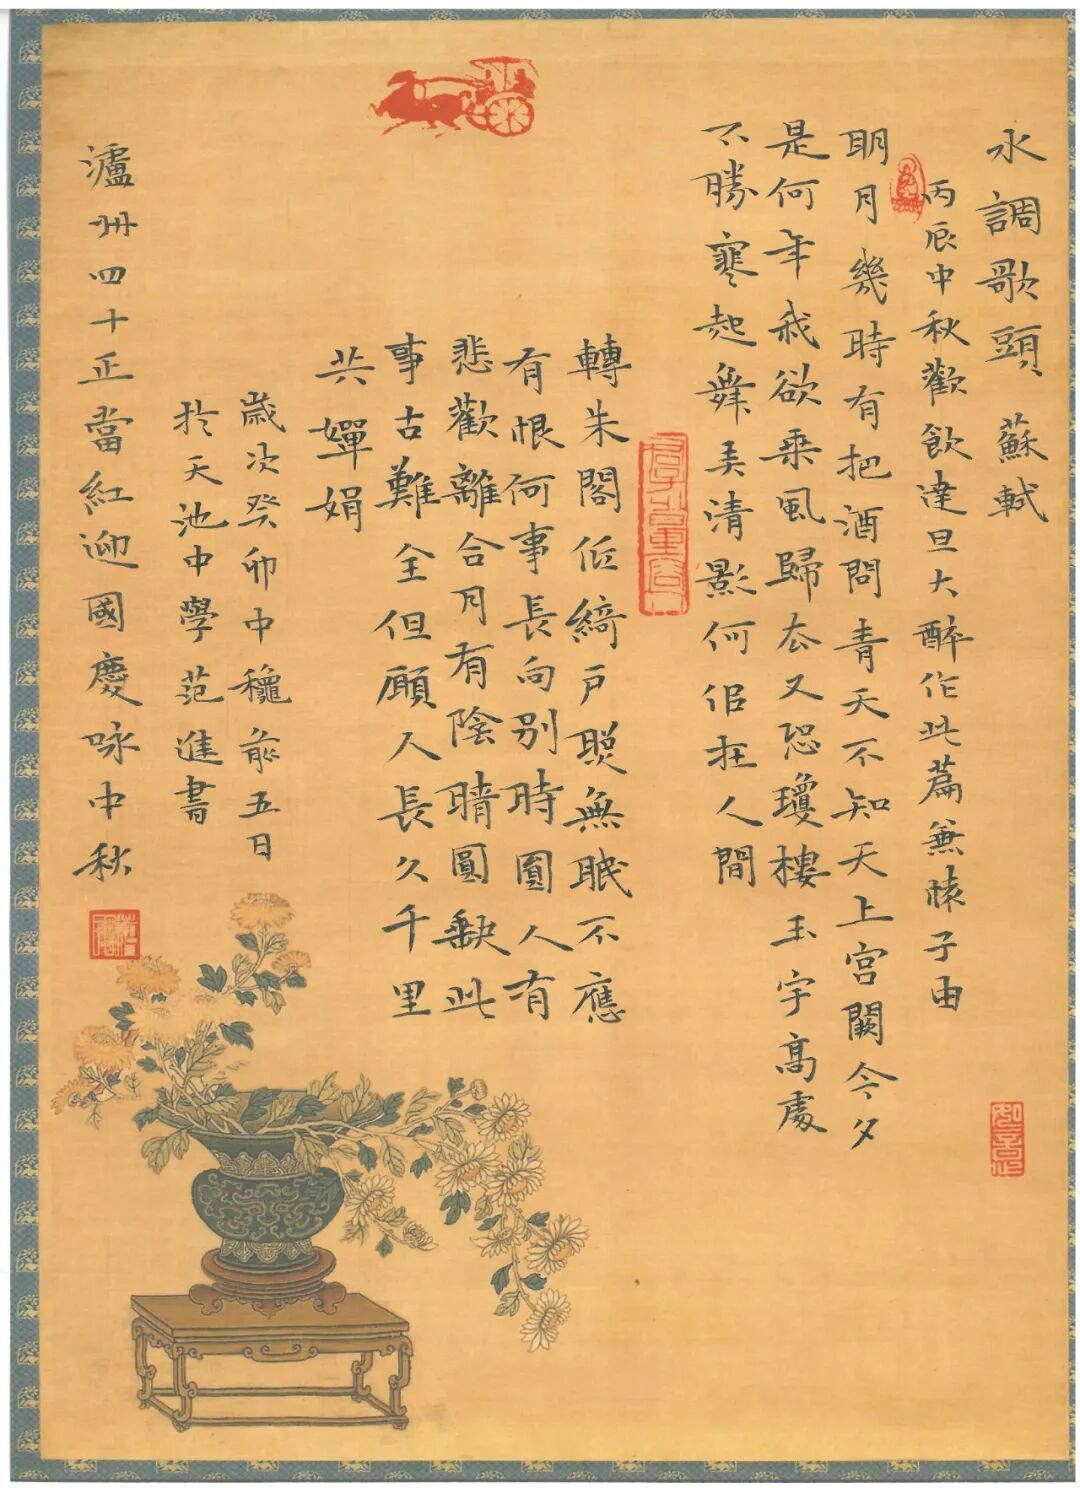 水調歌頭 蘇軾
丙辰中秋歡飲達旦大醉作此篇兼懷子由
明月幾時有把酒問青天不知天上宮闕今夕
是何年我欲乘風歸去又恐瓊樓玉宇高處
不勝寒起舞弄清影何佀在人間
轉朱閣低綺戶照無眠不應
有恨何事長向別時圓人有
悲歡離合月有陰晴圓缺此
事古難全但願人長久千里
共嬋娟
歲次癸卯中龝前五日
於天池中學范進書
瀘州四十正當紅迎國慶咏中秋